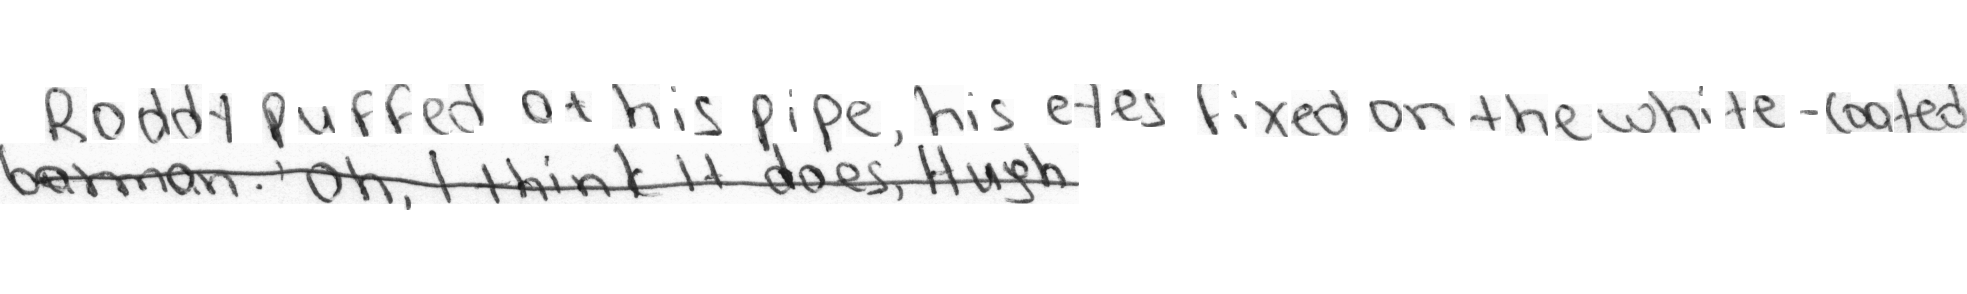 Roddy puffed at his pipe, his eyes fixed on the white-coated
barman. 'Oh, I think it does, Hugh